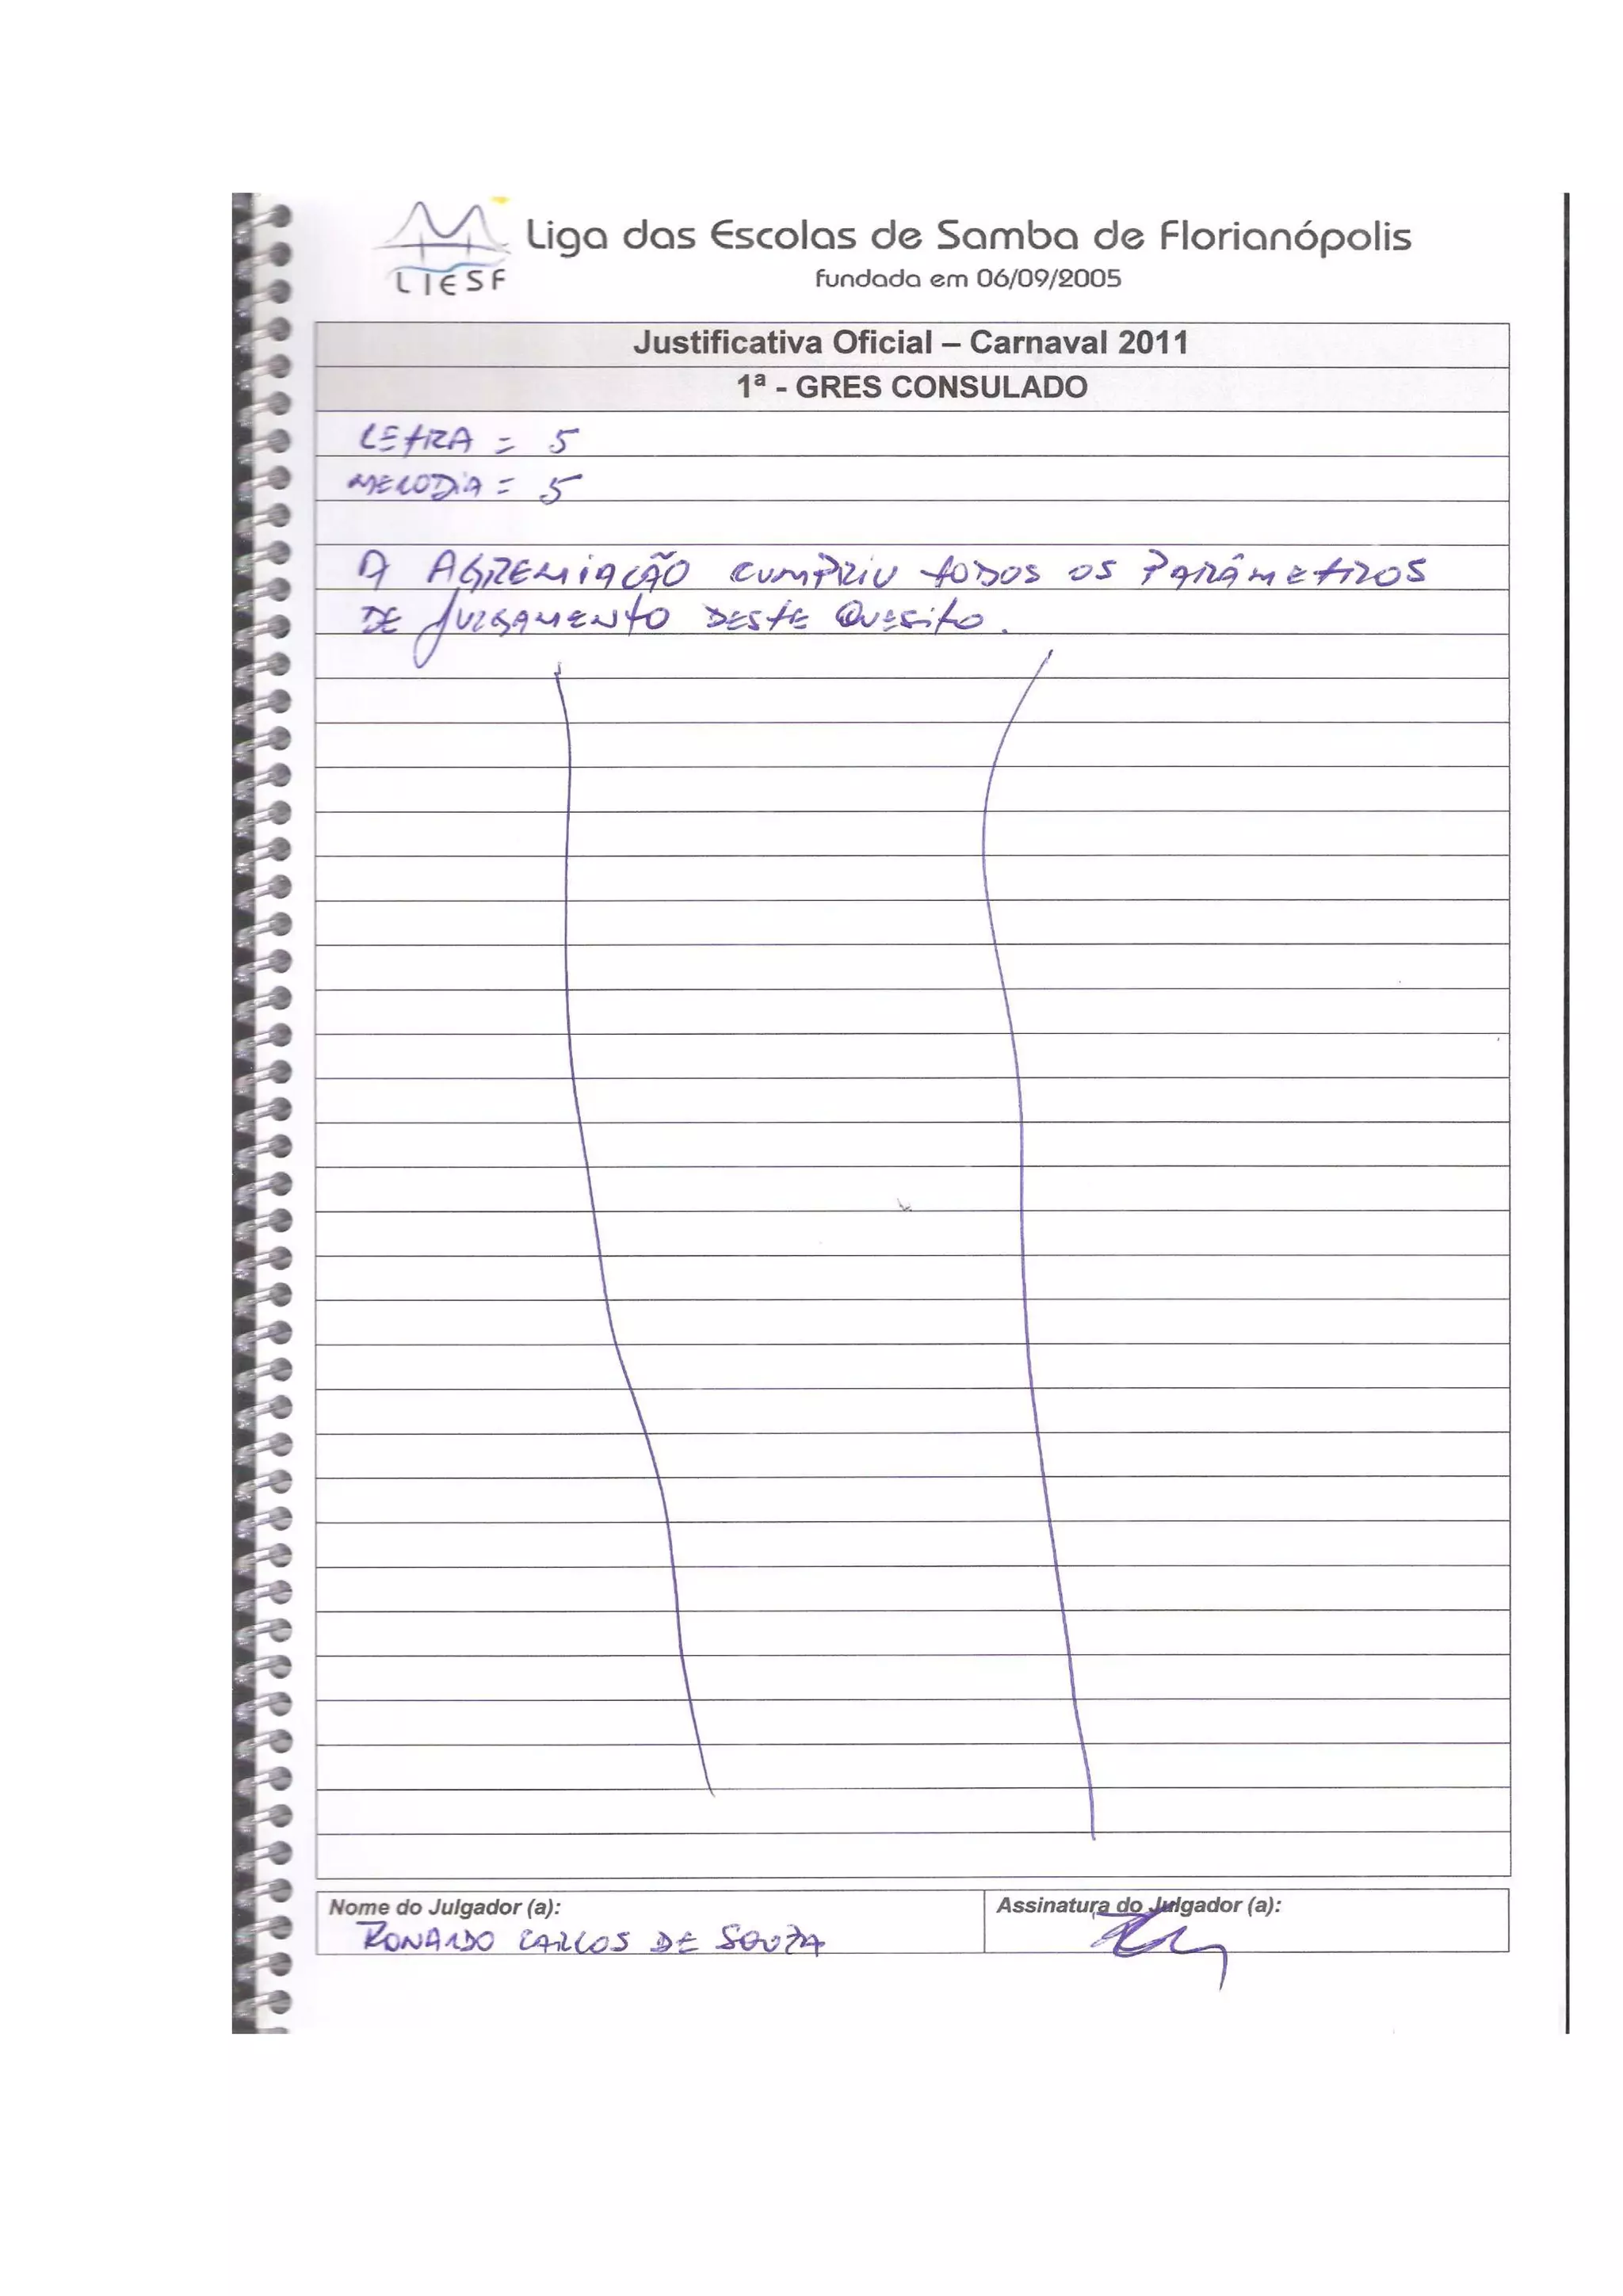 LIESF
Liga das Escolas de Samba de Florianópolis
fundada em 06/09/2005
Justificativa Oficial – Carnaval 2011
1ª - GRES CONSULADO
LETRA = 5
MELODIA = 5
A AGREMIAÇÃO CUMPRIU TODOS OS PARÂMETROS
DE JULGAMENTO DESTE QUESITO.
Nome do Julgador (a):
RONALDO CARLOS DE SOUZA
Assinatura do Julgador (a):